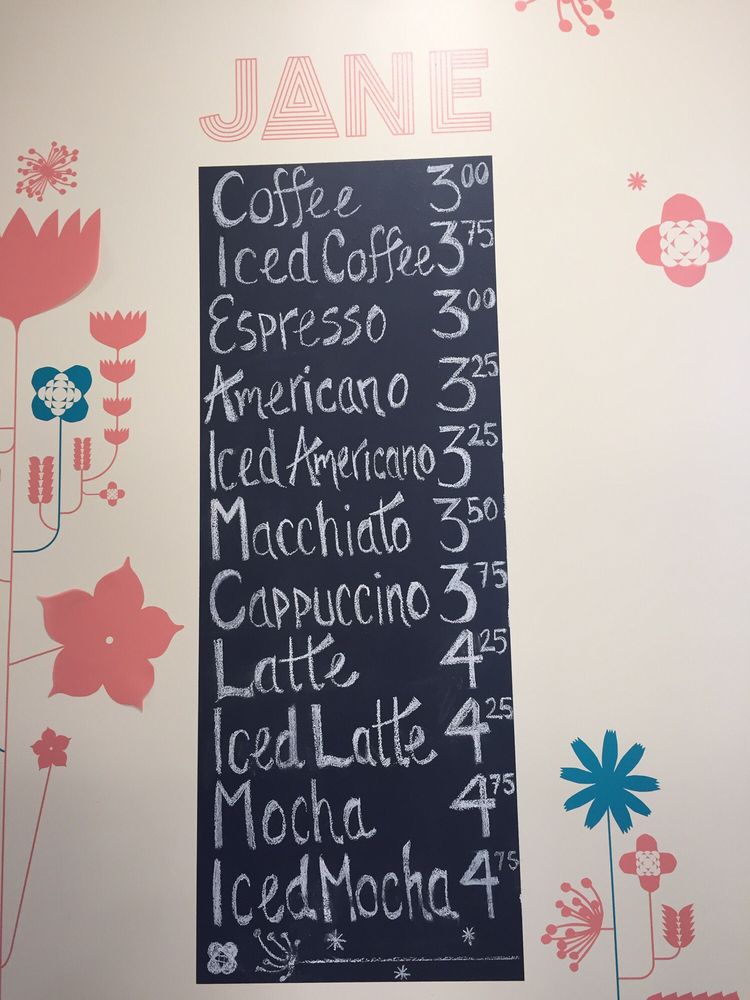 JANE
Coffee 3 00
Iced Coffee 3 75
Espresso 3 00
Americano 3 25
Iced Americano 3 25
Macchiato 3 50
Cappuccino 3 75
Latte 4 25
Iced Latte 4 25
Mocha 4 75
Iced Mocha 4 75